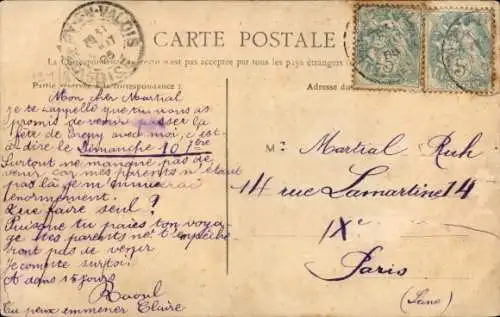 CARTE POSTALE
La Correspondance au recto n'est pas acceptée par tous les pays étrangers
Partie réservée à la correspondance
Adresse du
Mon cher Martial
je te rappelle que tu nous as
promis de venir passer la
fête de Crépy avec moi, c'est
à-dire le Dimanche 10 7bre
Surtout ne manque pas de
venir car mes parents n'étant
pas là je m'ennuierai
énormement.
Que faire seul ?
Puisque tu paies ton voya-
ge tes parents ne t'empêche
ront pas de venir
Je compte sur toi.
A dans 15 jours
Raoul
Tu peux emmener Claire
M. Martial Ruh
14 rue Lamartine 14
IXe
Paris
(Seine)